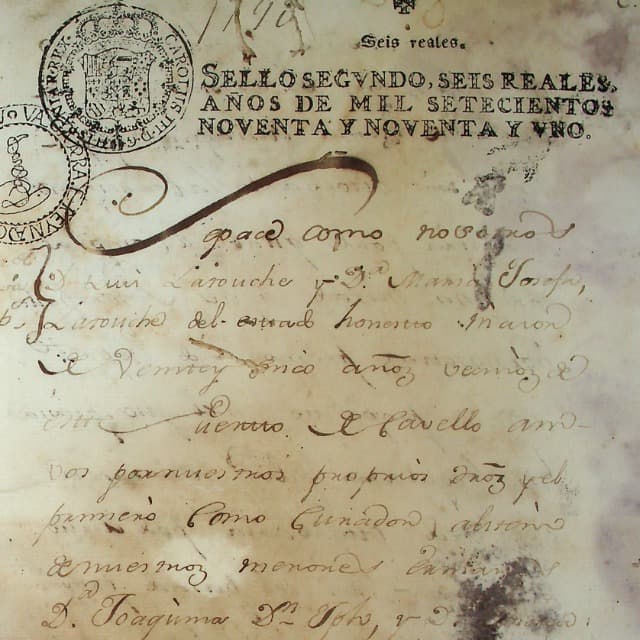 1790
Seis reales.
SELLO SEGVNDO, SEIS REALES,
AÑOS DE MIL SETECIENTOS
NOVENTA Y NOVENTA Y VNO.
CAROLUS III D. G.
como nosotros
Dn Luis Larouche y Da Maria Josefa,
Larouche del estado honesto maior
de Veinte y sinco años vecinos de
este Puerto de Cavello am-
vos por nuestros propios dros y el
primero como Curador
de nuestros menores hermanos
Dn Joaquina Dn y Dn